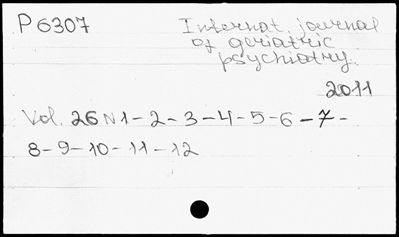 P 6307
Internat. journal
of geriatric
psychiatry.
2011
Vol. 26 N 1 - 2 - 3 - 4 - 5 - 6 - 7 -
8 - 9 - 10 - 11 - 12